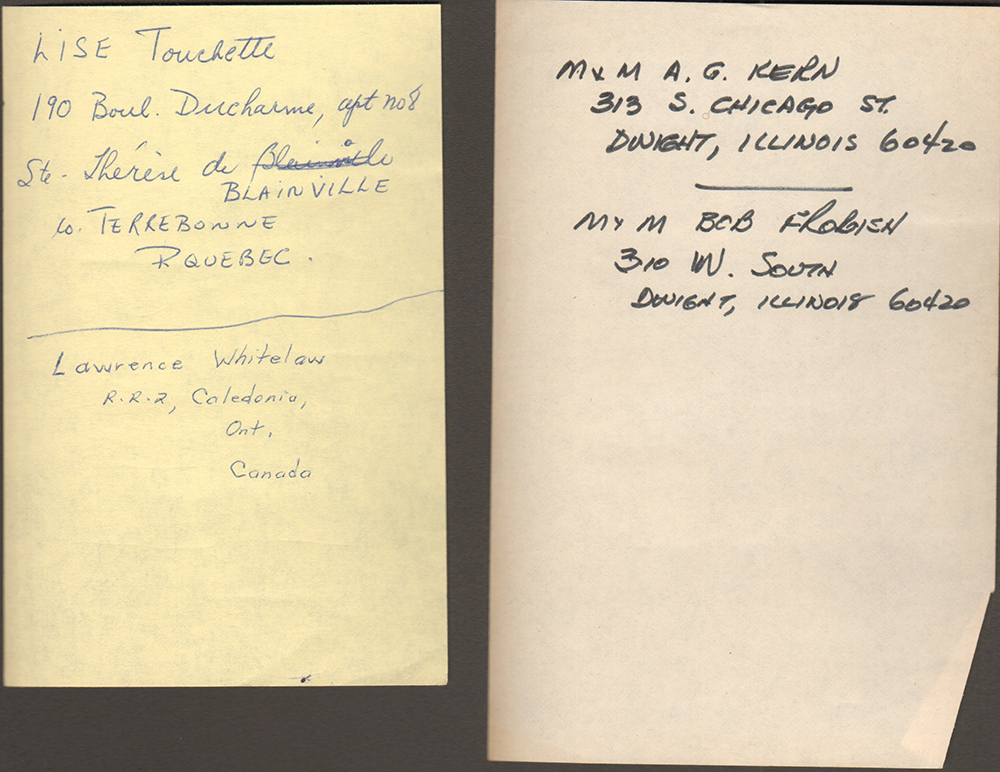 LISE Touchette
190 Boul. Ducharme, apt no 8
Ste-Thérèse de Blainville
BLAINVILLE
Co. TERREBONNE
P QUEBEC.
Lawrence Whitelaw
R.R.2, Caledonia,
Ont,
Canada
M & M A. G. KERN
313 S. CHICAGO ST.
DWIGHT, ILLINOIS 60420
M & M BOB FROBISH
310 W. SOUTH
DWIGHT, ILLINOIS 60420